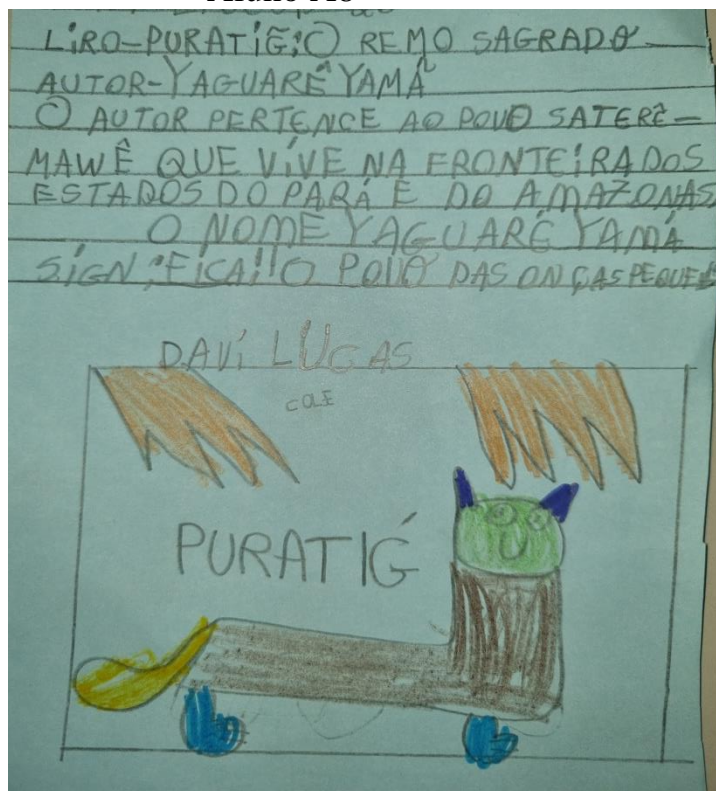 LIRO-PURATIG: O REMO SAGRADO
AUTOR-YAGUARÊ YAMÃ
O AUTOR PERTENCE AO POVO SATERÊ-
MAWÊ QUE VIVE NA FRONTEIRA DOS
ESTADOS DO PARÁ E DO AMAZONAS
O NOME YAGUARÉ YAMÁ
SIGNIFICA!! O POVO DAS ONÇAS PEQUE
DAVI LUCAS
PURATIĢ́